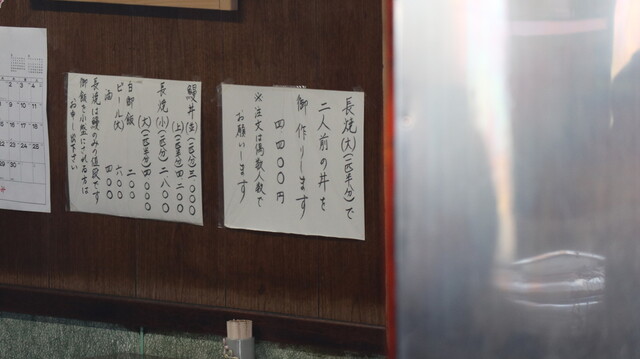 長焼(大)(一匹半分)で
二人前の丼を
御作りします
四四〇〇円
※注文は偶数人数で
お願いします
鰻丼(並)(一匹分)三〇〇〇
(上)(一匹半分)四二〇〇
長焼(小)(一匹分)二八〇〇
(大)(一匹半分)四〇〇〇
白御飯 二〇〇
ビール(大) 六〇〇
酒 四〇〇
長焼は鰻のみの値段です
御飯を小盛にされる方は
お申し出下さい